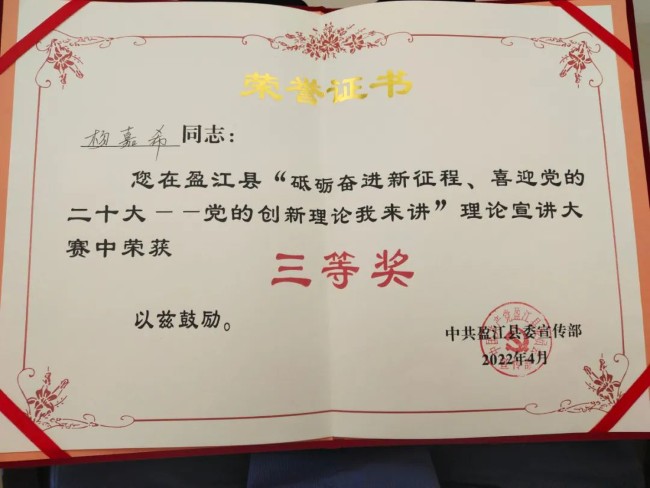 荣誉证书
杨嘉希同志：
您在盈江县“砥砺奋进新征程、喜迎党的
二十大——党的创新理论我来讲”理论宣讲大
赛中荣获
三等奖
以兹鼓励。
中共盈江县委宣传部
2022年4月